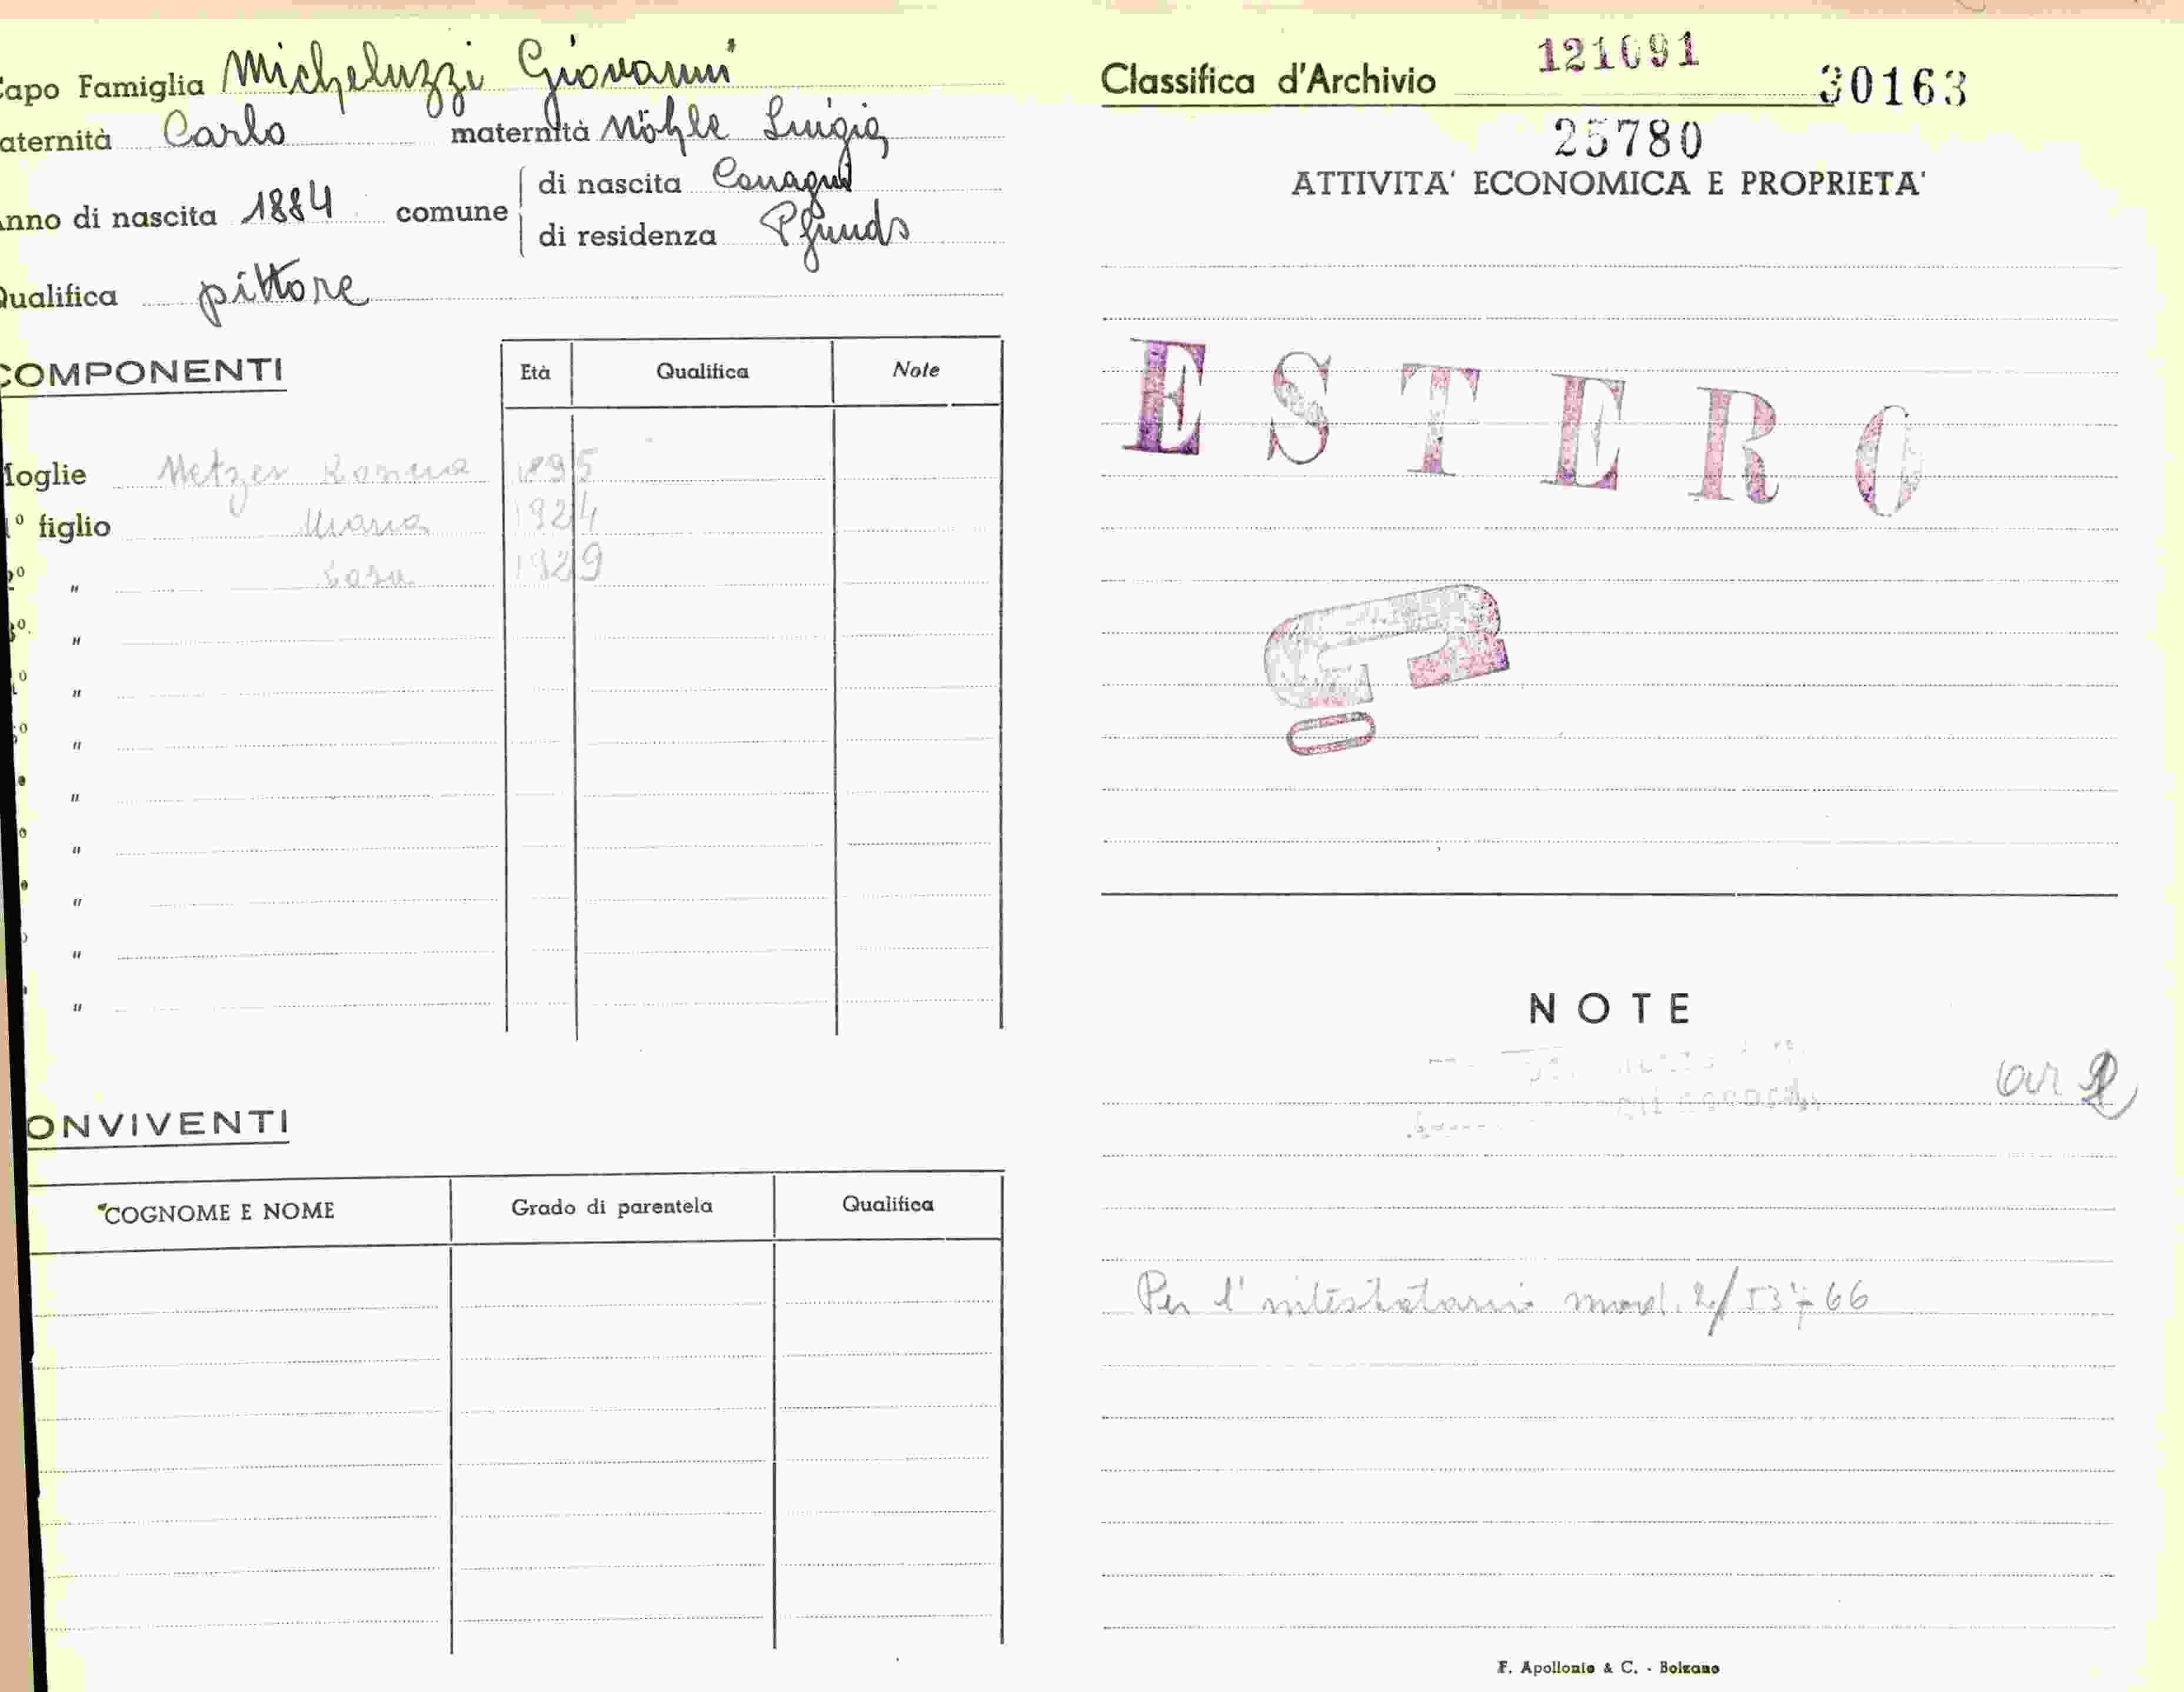 Capo Famiglia Micheluzzi Giovanni
aternità Carlo maternità Nöhle Luigia
Anno di nascita 1884 comune di nascita
di residenza Pfunds
Qualifica pittore
COMPONENTI
Età Qualifica Note
Moglie Metzer 1895
1º figlio Maria 1924
2º " 1929
3º "
"
"
"
"
"
"
"
ONVIVENTI
COGNOME E NOME Grado di parentela Qualifica
Classifica d'Archivio 121691 30163
25780
ATTIVITA' ECONOMICA E PROPRIETA'
ESTERO
NOTE
Per l'intestatario mod. 2/53766
F. Apollonio & C. - Bolzano